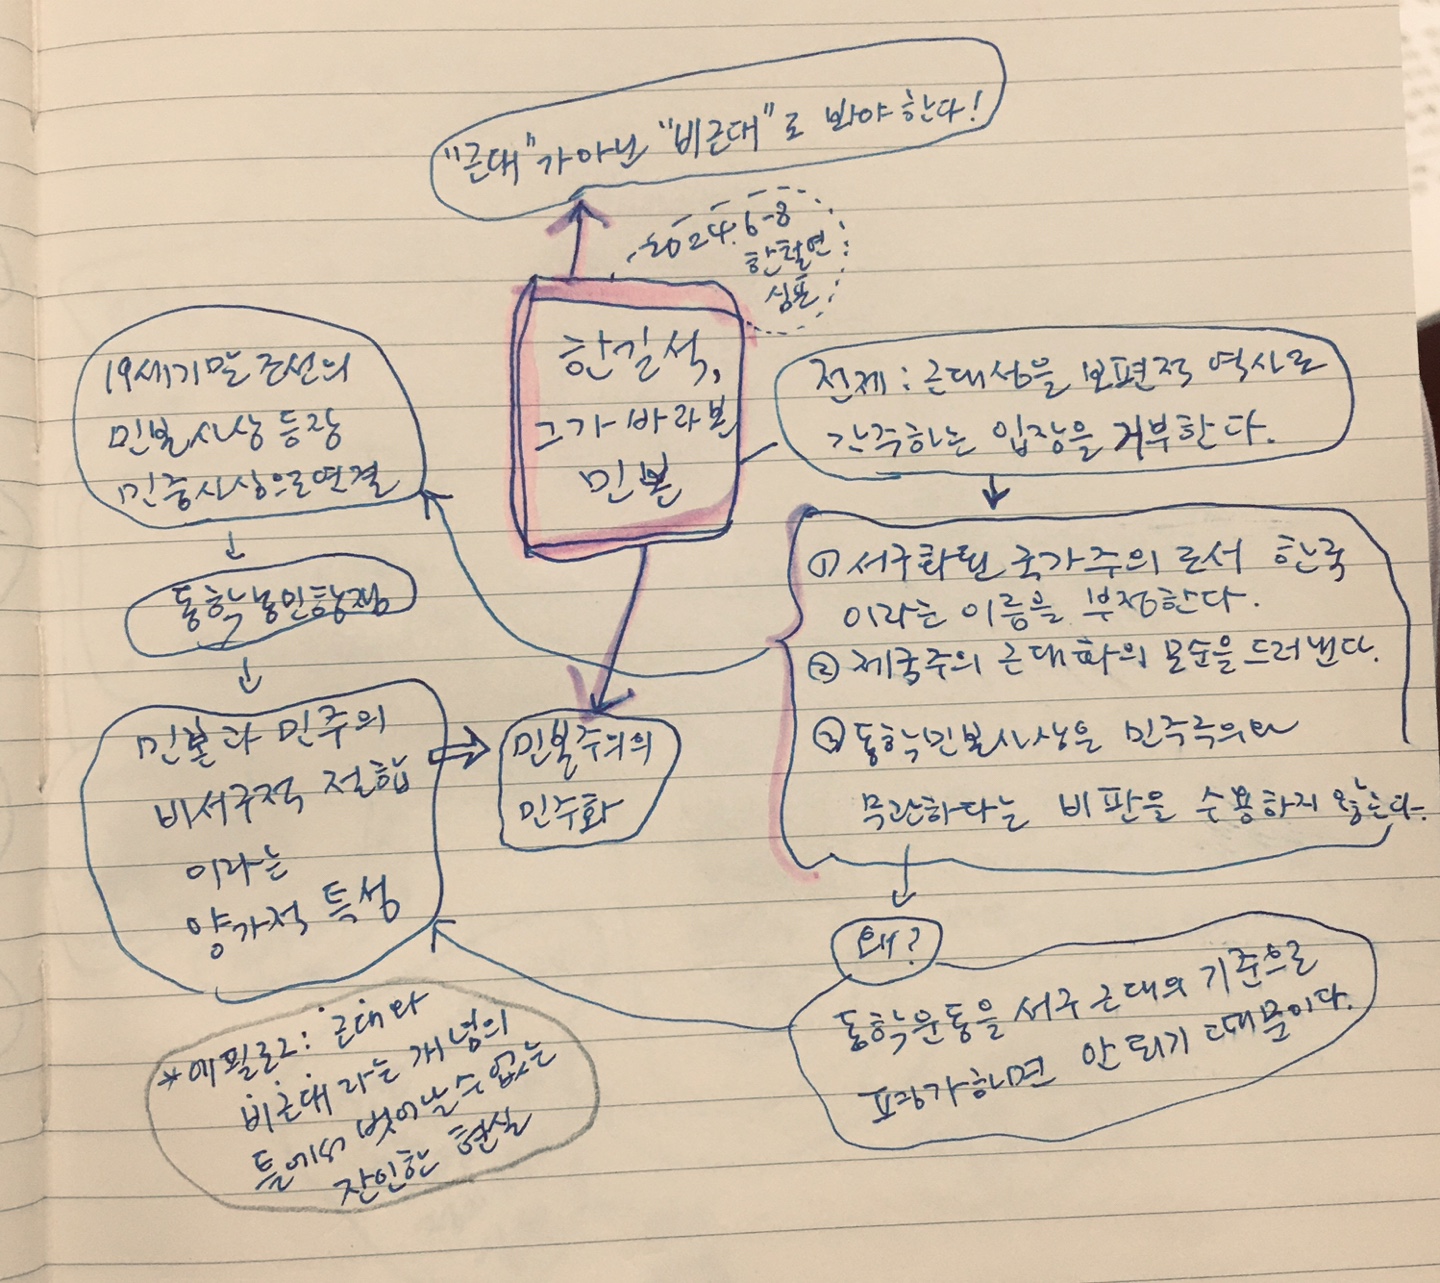 "근대"가 아닌 "비근대"로 봐야 한다!
2024. 6-8
한철연
심포
한길석,
그가 바라본
민본
19세기말 조선의
민본사상 등장
민중사상으로 연결
동학농민항쟁
민본과 민주의
비서구적 접합
이라는
양가적 특성
민본주의의
민주화
전제 : 근대성을 보편적 역사로
간주하는 입장을 거부한다.
① 서구화된 국가주의로서 한국
이라는 이름을 부정한다.
② 제국주의 근대화의 모순을 드러낸다.
③ 동학민본사상은 민주주의와
무관하다는 비판을 수용하지 않는다.
왜?
동학운동을 서구 근대의 기준으로
평가하면 안 되기 때문이다.
* 에필로그 : 근대와
비근대라는 개념의
틀에서 벗어날 수 없는
잔인한 현실